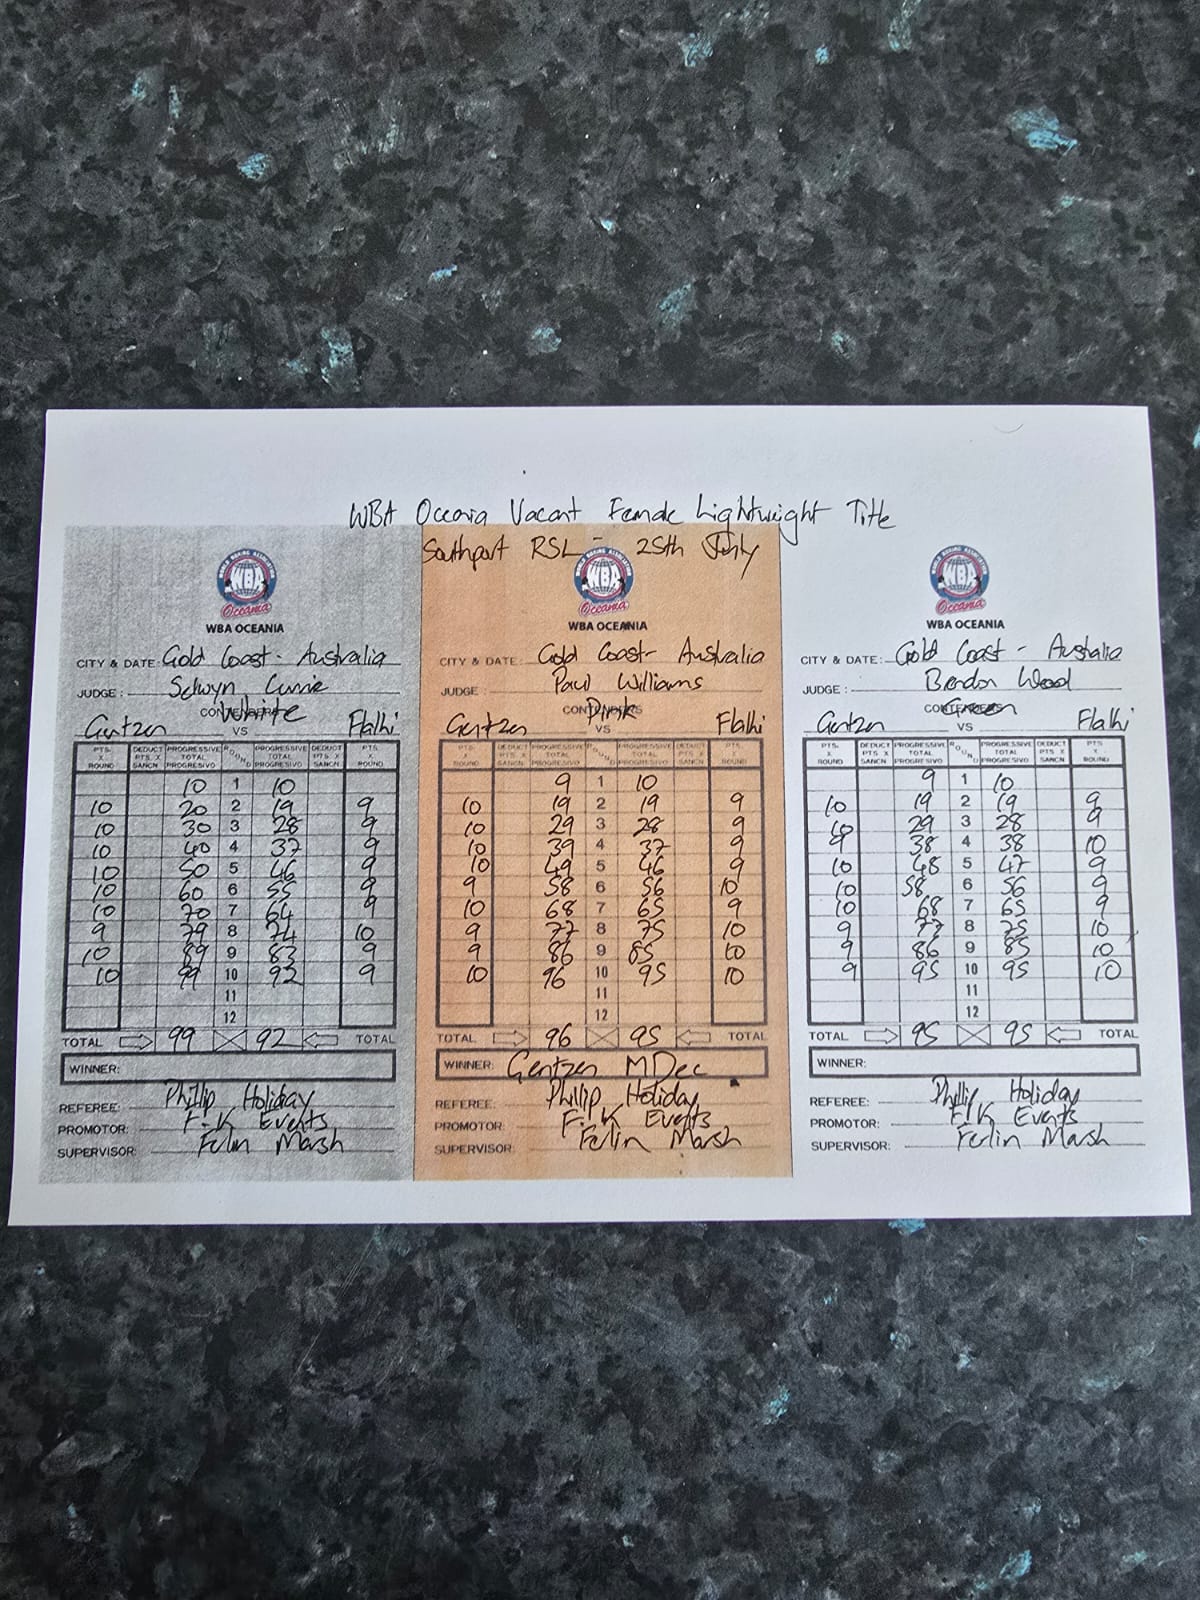 WBA Oceania Vacant Female Lightweight Title
Southport RSL - 25th July
WBA
Oceania
WBA OCEANIA
CITY & DATE: Gold Coast - Australia
JUDGE: Selwyn Currie
CONTENDERS White
Gentzen VS Flalhi
PTS. X ROUND DEDUCT PTS X SANCN PROGRESSIVE TOTAL PROGRESIVO ROUND PROGRESSIVE TOTAL PROGRESIVO DEDUCT PTS X SANCN PTS. X ROUND
10 1 10
10 20 2 19 9
10 30 3 28 9
10 40 4 37 9
10 50 5 46 9
10 60 6 55 9
10 70 7 64 9
9 79 8 74 10
10 89 9 83 9
10 99 10 92 9
11
12
TOTAL 99 92 TOTAL
WINNER:
REFEREE: Phillip Holiday
PROMOTOR: F.K Events
SUPERVISOR: Ferlin Marsh
WORLD BOXING ASSOCIATION
WBA
Oceania
WBA OCEANIA
CITY & DATE: Gold Coast - Australia
JUDGE: Paul Williams
CONTENDERS Pink
Gentzen VS Flalhi
PTS. X ROUND DEDUCT PTS X SANCN PROGRESSIVE TOTAL PROGRESIVO ROUND PROGRESSIVE TOTAL PROGRESIVO DEDUCT PTS X SANCN PTS. X ROUND
9 1 10
10 19 2 19 9
10 29 3 28 9
10 39 4 37 9
10 49 5 46 9
9 58 6 56 10
10 68 7 65 9
9 77 8 75 10
9 86 9 85 10
10 96 10 95 10
11
12
TOTAL 96 95 TOTAL
WINNER: Gentzen MDec
REFEREE: Phillip Holiday
PROMOTOR: F.K Events
SUPERVISOR: Ferlin Marsh
WORLD BOXING ASSOCIATION
WBA
Oceania
WBA OCEANIA
CITY & DATE: Gold Coast - Australia
JUDGE: Brendon Wood
CONTENDERS Green
Gentzen VS Flalhi
PTS. X ROUND DEDUCT PTS X SANCN PROGRESSIVE TOTAL PROGRESIVO ROUND PROGRESSIVE TOTAL PROGRESIVO DEDUCT PTS X SANCN PTS X ROUND
9 1 10
10 19 2 19 9
10 29 3 28 9
9 38 4 38 10
10 48 5 47 9
10 58 6 56 9
10 68 7 65 9
9 77 8 75 10
9 86 9 85 10
9 95 10 95 10
11
12
TOTAL 95 95 TOTAL
WINNER:
REFEREE: Phillip Holiday
PROMOTOR: F.K Events
SUPERVISOR: Ferlin Marsh